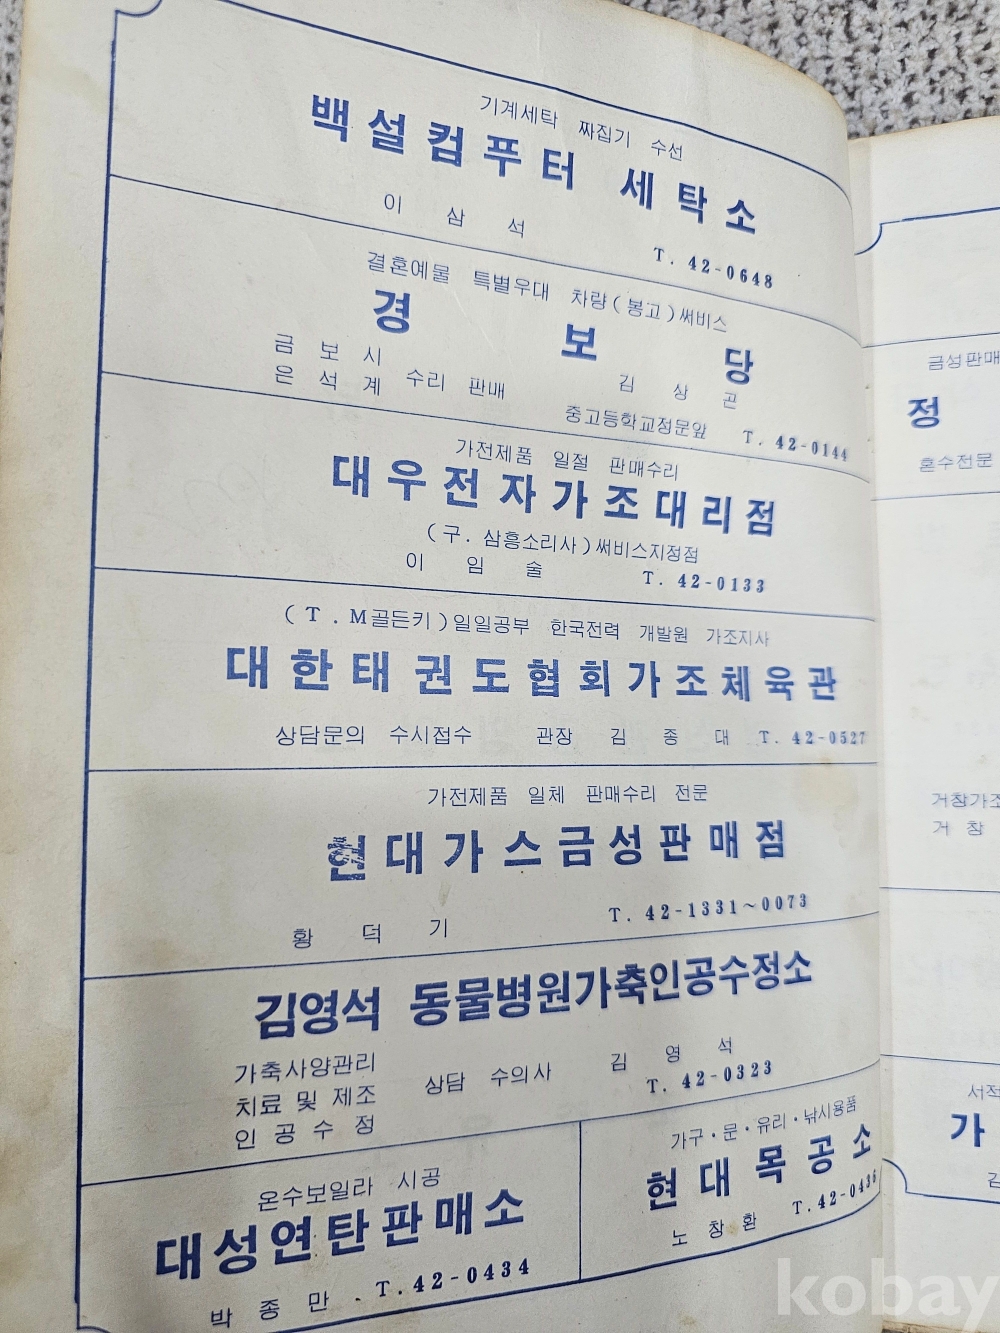 기계세탁 짜집기 수선
백설컴퓨터 세탁소
이삼석
T. 42-0648
결혼예물 특별우대 차량(봉고)써비스
경보당
금보시
은석계 수리 판매
김상곤
중고등학교정문앞 T. 42-0144
가전제품 일절 판매수리
대우전자가조대리점
(구. 삼흥소리사)써비스지정점
이임술 T. 42-0133
(T. M골든키)일일공부 한국전력 개발원 가조지사
대한태권도협회가조체육관
상담문의 수시접수 관장 김종대 T. 42-0527
가전제품 일체 판매수리 전문
현대가스금성판매점
황덕기 T. 42-1331~0073
김영석 동물병원가축인공수정소
가축사양관리
치료 및 제조
인공수정
상담 수의사 김영석
T. 42-0323
온수보일라 시공
대성연탄판매소
박종만 T. 42-0434
가구·문·유리·낚시용품
현대목공소
노창환 T. 42-0436
금성판매
정
혼수전문
거창가조
거창
서적
가
kobay